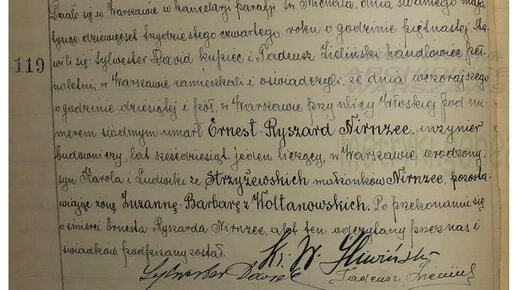 Działo się w Warszawie w kancelarji parafji św. Michała, dnia siódmego maja
tysiąc dziewięćset trzydziestego czwartego roku o godzinie piętnastej. Sta-
119
wili się: Sylwester David kupiec i Tadeusz Zieliński handlowiec peł-
noletni, w Warszawie zamieszkali i oświadczyli, że dnia wczorajszego
o godzinie dziesiątej i pół, w Warszawie przy ulicy Włoskiej pod nu-
merem siódmym umarł Ernest-Ryszard Nirnzee, inżynier
budowniczy, lat sześćdziesiąt jeden liczący, w Warszawie urodzony,
syn Karola i Ludwiki ze Strzyżewskich małżonków Nirnzee, pozosta-
wiając żonę Zuzannę-Barbarę z Wołtanowskich. Po przekonaniu się
o śmierci Ernesta-Ryszarda Nirnzee, akt ten odczytany przez nas i
świadków podpisany został.
Ks. W. Śliwiński
Sylwester David Tadeusz Zieliński